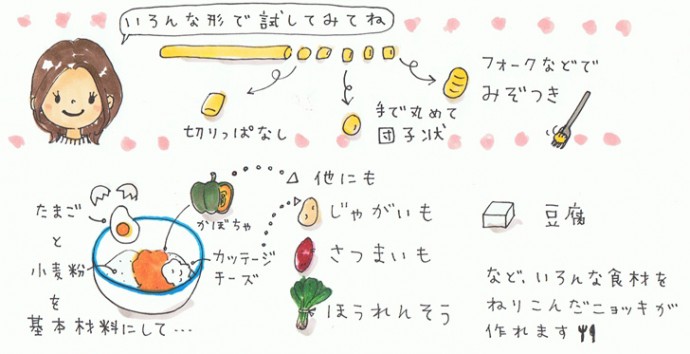 いろんな形で試してみてね
切りっぱなし
手で丸めて
団子状
フォークなどで
みぞつき
たまご
と
小麦粉
を
基本材料にして…
かぼちゃ
カッテージ
チーズ
△ 他にも
じゃがいも
さつまいも
ほうれんそう
豆腐
など、いろんな食材を
ねりこんだニョッキが
作れます